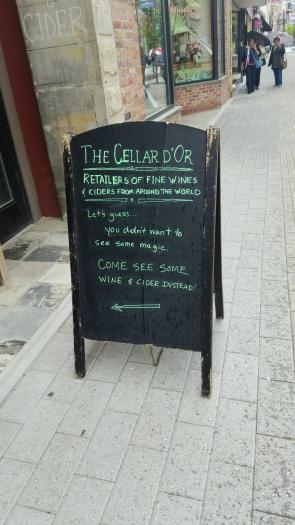 CIDER
THE CELLAR D'OR
RETAILERS OF FINE WINES
& CIDERS FROM AROUND THE WORLD
Let's guess....
you didn't want to
see some magic.
COME SEE SOME
WINE & CIDER INSTEAD!